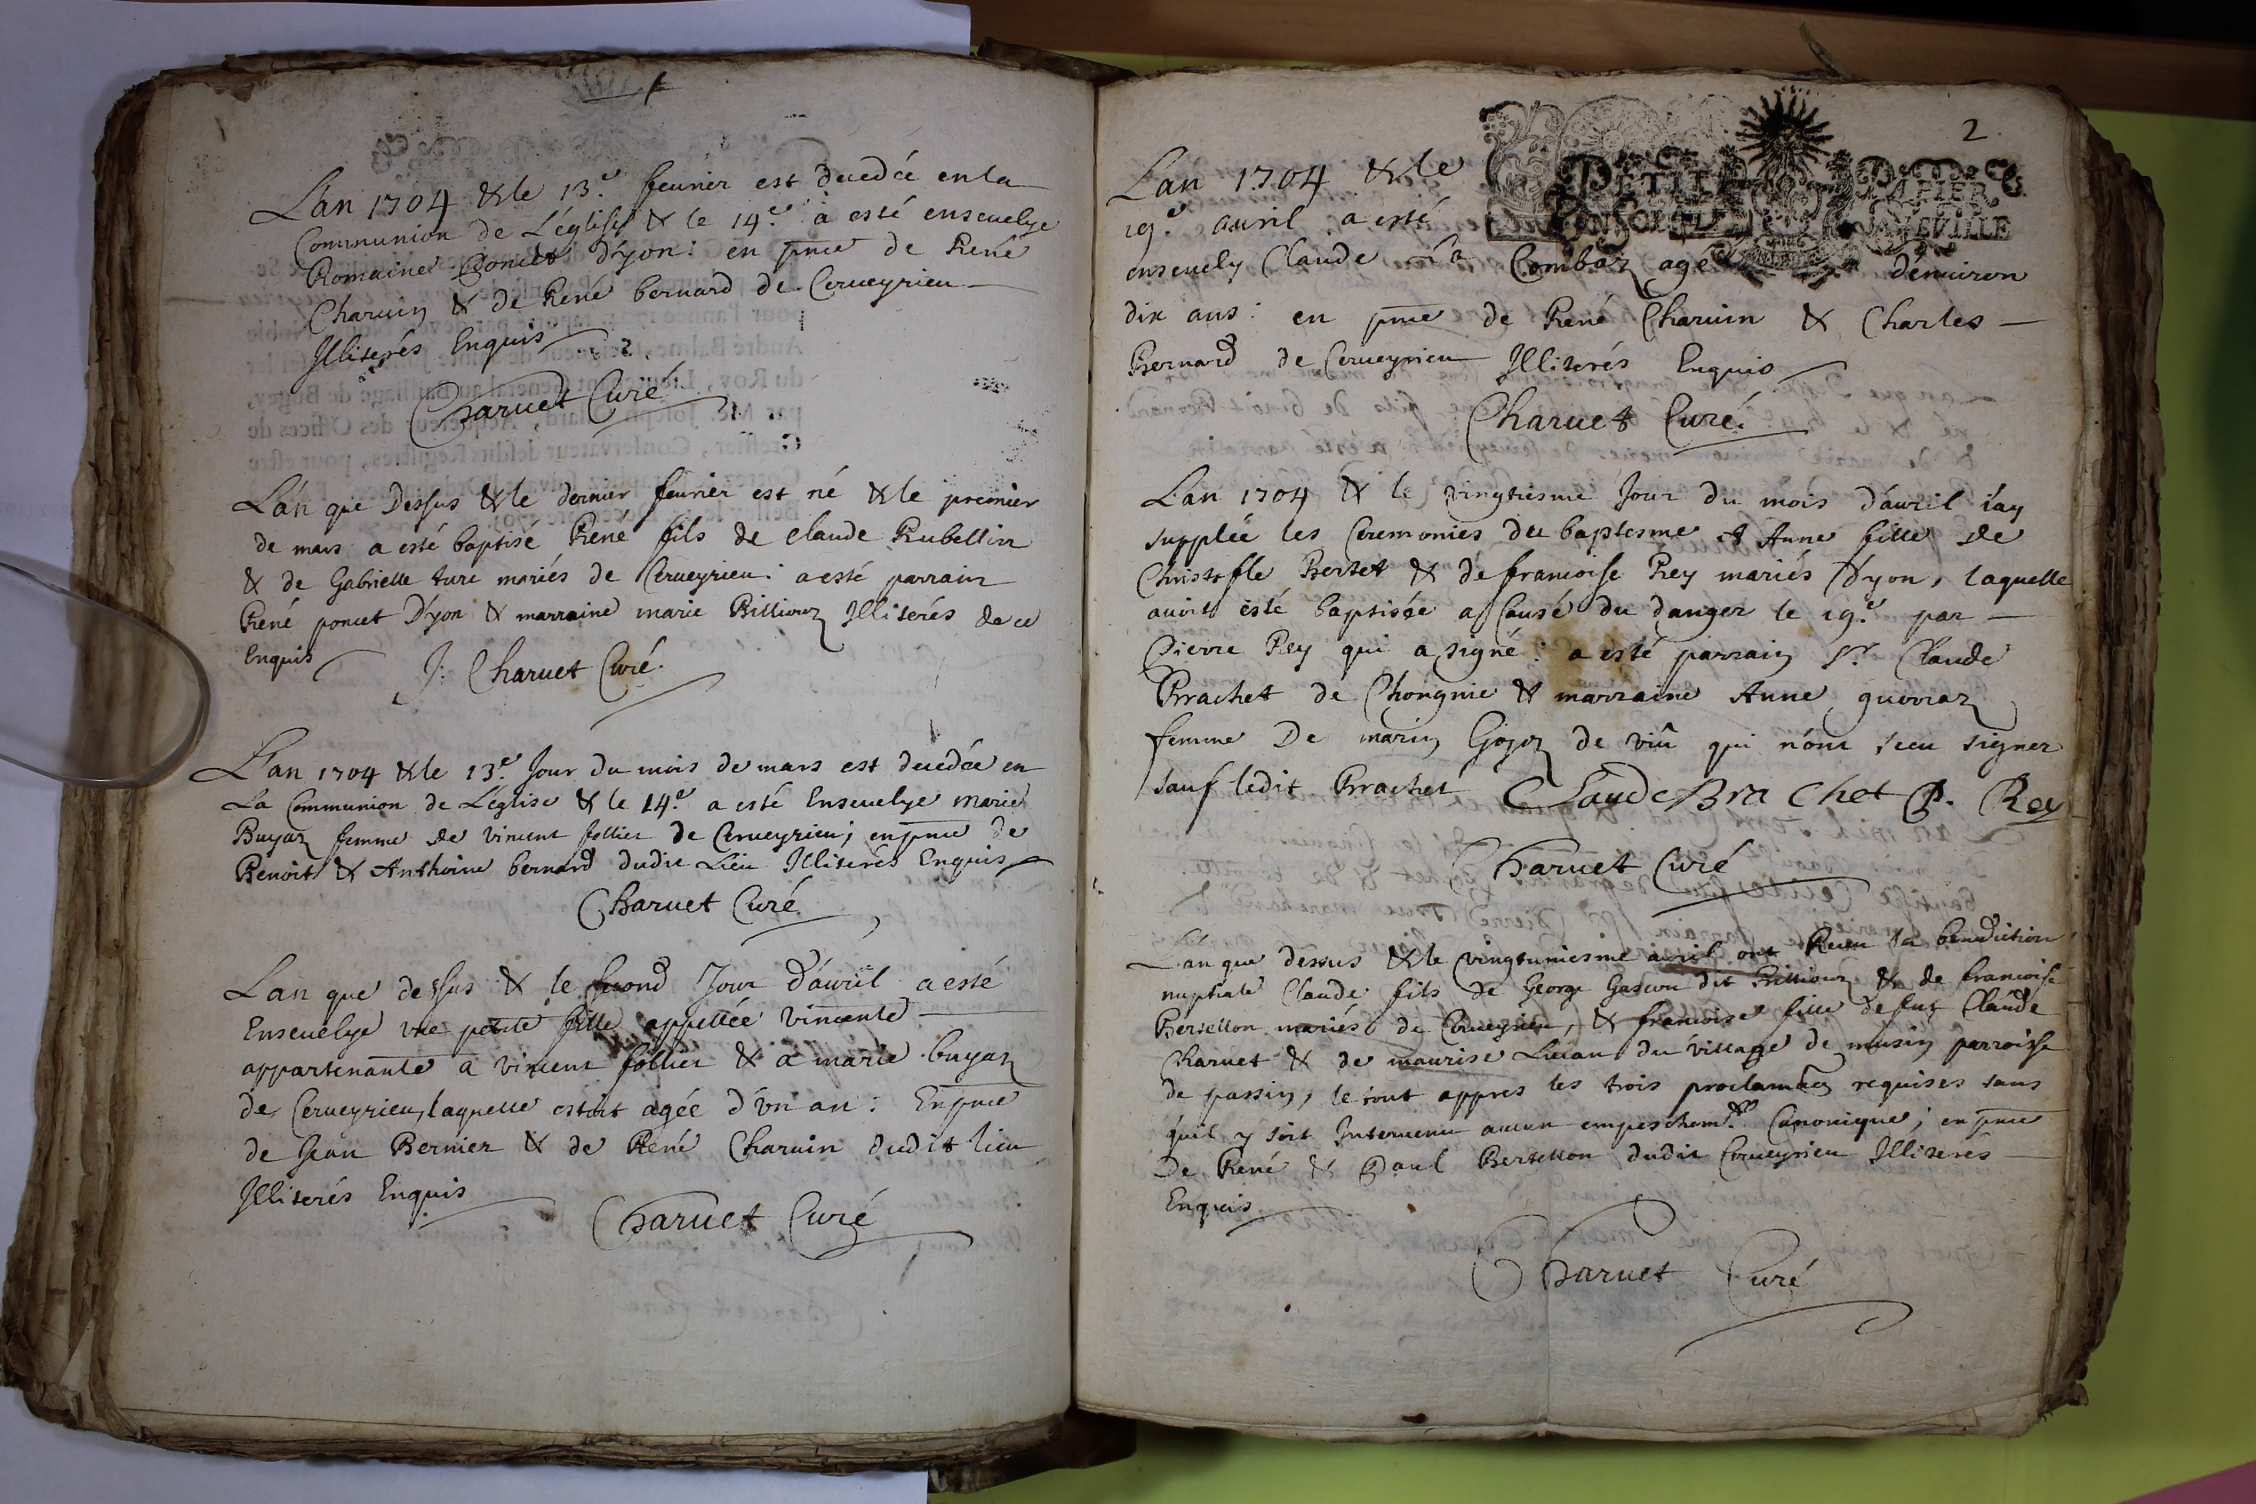 L'an 1704 & le 13.e feurier est decedée en la
Communion de L'église & le 14.e a esté enseuelye
Romaine Poncet D'yon: en pnce de René
Charuin & de René bernard de Cerueyrieu
Illiterés Enquis
Charuet Curé
L'an que Dessus & le dernier feurier est né & le premier
de mars a esté baptisé René fils de Claude Rubellin
& de Gabrielle ture mariés de Cerueyrieu: a esté parrain
René poncet D'yon & marraine marie Billiouz Illiterés de ce
Enquis
J: Charuet Curé.
L'an 1704 & le 13.e Jour du mois de mars est decedée en
La Communion de L'église & le 14.e a esté Enseuelye marie
Buyaz femme de vincent follier de Cerueyrieu; en pnce de
Benoit & Anthoine bernard dudit Lieu Illiterés Enquis
Charuet Curé
L'an que dessus & le second Jour d'auril a esté
Enseuelye vne petite fille appellée vincente
appartenante a vincent follier & a marie buyaz
de Cerueyrieu, laquelle estoit agée d'vn an: En pnce
de Jean Bernier & de René Charuin dudit lieu
Illiterés Enquis
Charuet Curé
2
PETIT PAPIER
L'an 1704 & le
19.e auril a esté
enseuely Claude Combaz agé d'enuiron
dix ans: en pnce de René Charuin & Charles
Bernard de Cerueyrieu Illiterés Enquis
Charuet Curé.
L'an 1704 & le vingtiesme Jour du mois d'auril i'ay
supplée les Ceremonies du baptesme A Anne fille de
Christofle Bertet & de francoise Rey mariés D'yon, laquelle
auoit esté baptisée a Cause du danger le 19.e par
Pierre Rey qui a signé: a esté parrain Sr. Claude
Brachet de Chongnie & marraine Anne
femme De marin Gojoz de viu qui n'ont sceu signer
sauf ledit Brachet Claude Bra chet P. Rey
Charuet Curé
L'an que dessus & le vingtuniesme auril ont Receu la benediction
nuptiale Claude fils de George Gascon dit Billiouz & de francoise
Bertellon mariés de Cerueyrieu, & francoise fille de fut Claude
Charuet & de maurise du village de musin parroisse
de passin, le tout appres les trois proclamãons requises sans
qu'il y soit Interuenu aucun empeschemt. Canonique; en pnce
De René & Paul Bertellon dudit Cerueyrieu Illiterés
Enquis
Charuet Curé